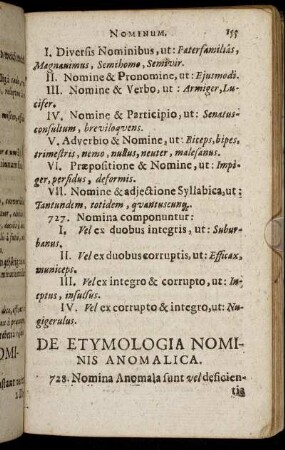 NOMINUM. 155
I. Diversis Nominibus, ut: Paterfamiliâs,
Magnanimus, Semihomo, Semivir.
II. Nomine & Pronomine, ut: Ejusmodi.
III. Nomine & Verbo, ut: Armiger, Lu-
cifer.
IV. Nomine & Participio, ut: Senatus-
consultum, breviloqvens.
V. Adverbio & Nomine, ut: Biceps, bipes,
trimestris, nemo, nullus, neuter, malesanus.
VI. Præpositione & Nomine, ut: Impi-
ger, perfidus, deformis.
VII. Nomine & adjectione Syllabica, ut:
Tantundem, totidem, qvantuscunq.
727. Nomina componuntur:
I. Vel ex duobus integris, ut: Subur-
banus.
II. Vel ex duobus corruptis, ut: Efficax,
municeps.
III. Vel ex integro & corrupto, ut: In-
eptus, insulsus.
IV. Vel ex corrupto & integro, ut: Nu-
gigerulus.
DE ETYMOLOGIA NOMI-
NIS ANOMALICA.
728. Nomina Anomala sunt vel deficien-
tia